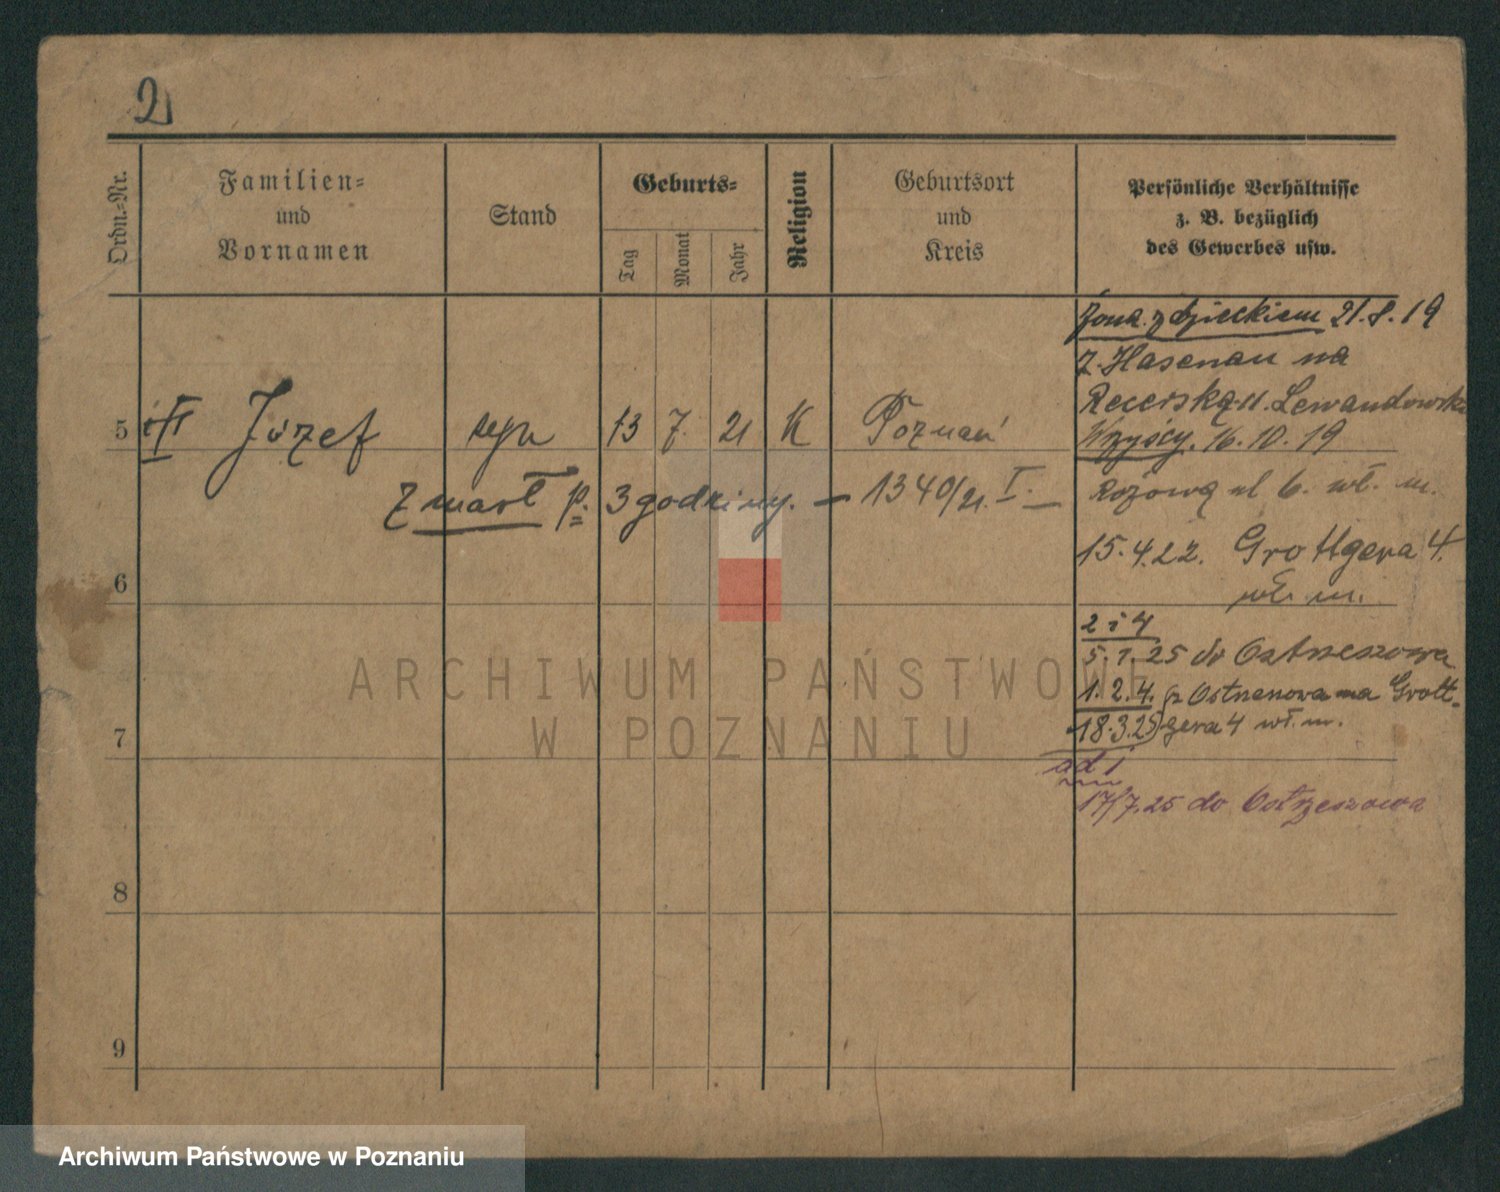 2
Ordn.-Nr.
Familien-
und
Vornamen
Stand
Geburts-
Tag
Monat
Jahr
Religion
Geburtsort
und
Kreis
Persönliche Verhältnisse
z. B. bezüglich
des Gewerbes usw.
Żona z dzieckiem 21.8.19
z. Hasenau na
ul. Lewandowska
5 III Józef syn 13 7. 21 K Poznań
Wszyscy. 16.10.19
zmarł p. 3 godziny. — 1340/21. I. —
Różową ul 6. wł. m.
15.4.22. Grottgera 4.
wł. m.
6
2 i 4
5.1.25 do Ostrzeszowa
1.2.4. z Ostrzeszowa na Grott-
18.3.25 gera 4 wł. m.
7
ad 1
17/7.25 do Ostrzeszowa
8
9
ARCHIWUM PAŃSTWOWE
W POZNANIU
Archiwum Państwowe w Poznaniu